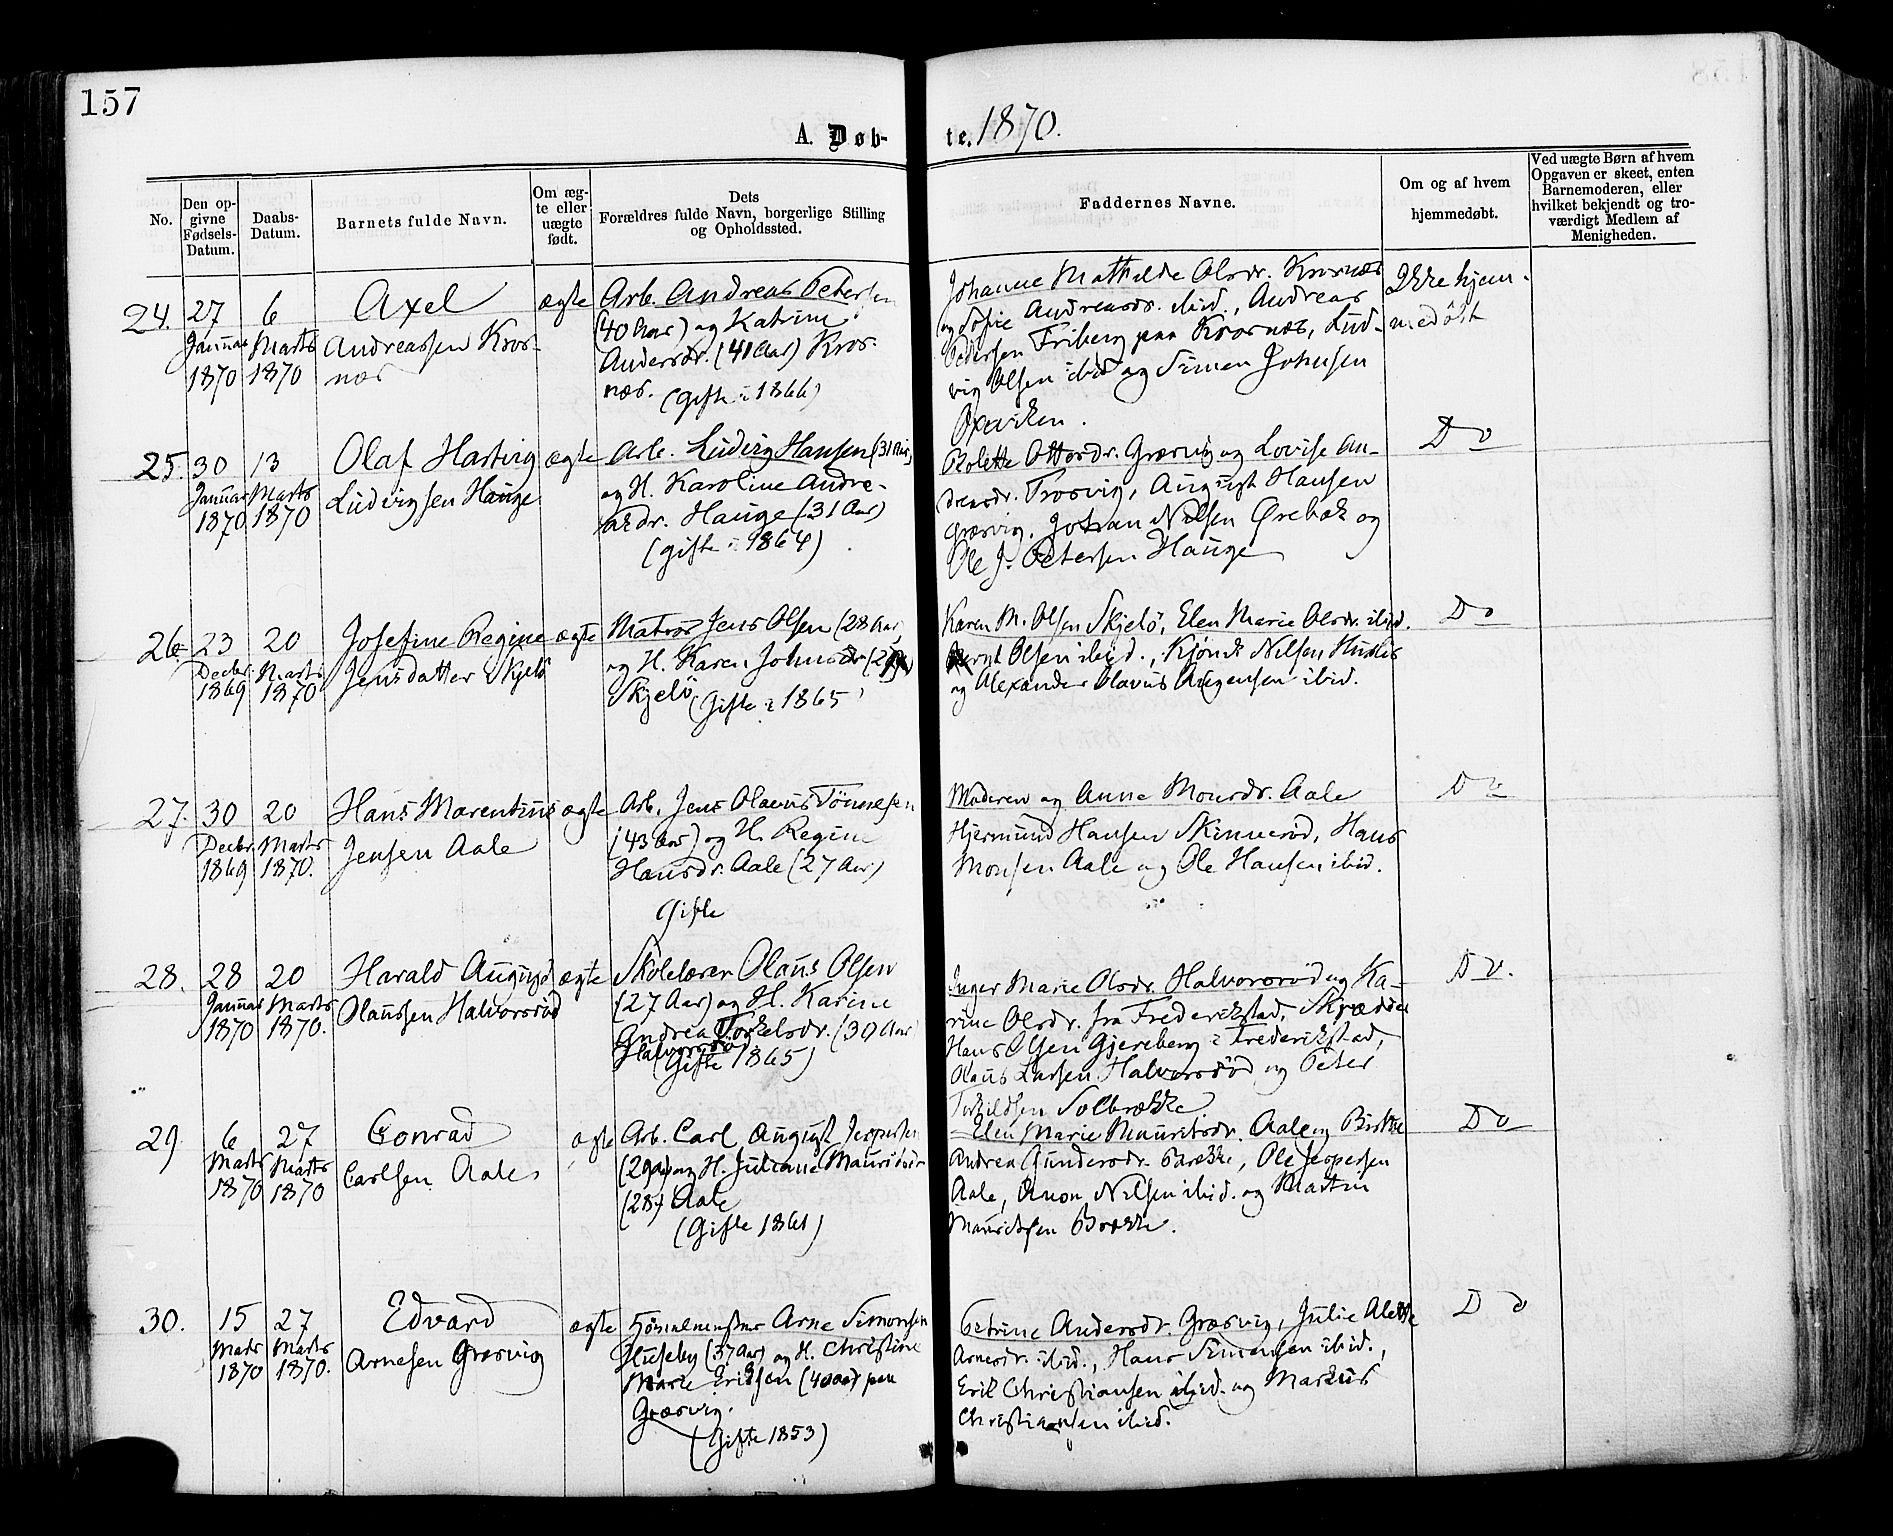 157
A. Døb-
te. 1870.
No.
Den op-
givne
Fødsels-
Datum.
Daabs-
Datum.
Barnets fulde Navn.
Om æg-
te eller
uægte
født.
Dets
Forældres fulde Navn, borgerlige Stilling
og Opholdssted.
Faddernes Navne.
Om og af hvem
hjemmedøbt.
Ved uægte Børn af hvem
Opgaven er skeet, enten
Barnemoderen, eller
hvilket bekjendt og tro-
værdigt Medlem af
Menigheden.
24.
27
Januar
1870
6
Marts
1870
Axel
Andreassen Kros-
næs
ægte
Arb. Andreas Petersen
(40 Aar) og Katrine
Andersdr. (41 Aar) Kros-
næs.
(Gifte i 1866)
Johanne Mathilde Olsdr. Krosnæs
og Sofie Andreasdr. ibid., Andreas
Pedersen Friberg paa Krosnæs, Lud-
vig Olsen ibid og Simen Johnsen
Oxeviken.
Ikke hjem-
medøbt
25.
30
Januar
1870
13
Marts
1870
Olaf Hartvig
Ludvigsen Hauge
ægte
Arb. Ludvig Hansen (31 Aar)
og H. Karoline Andre-
asdr. Hauge (31 Aar)
(gifte i 1864)
Bolette Ottersdr. Græsvig og Lovise An-
dreasdr. Trosvig, August Hansen
Græsvig, Johan Nilsen Ørebæk og
Ole J. Petersen Hauge
Do
26
23
Decbr
1869
20
Marts
1870
Josefine Regine
Jensdatter Skjelø
ægte
Matros Jens Olsen (28 Aar)
og H. Karen Johnsdr
Skjelø (Gifte i 1865)
Karen M. Olsen Skjelø, Elen Marie Olsdr. ibid.
Bernt Olsen ibid., Nilsen
og Alexander Olavus Augensen ibid.
Do
27.
30
Decbr.
1869
20
Marts
1870.
Hans Marentius
Jensen Aale
ægte
Arb. Jens Olavus Tønnesen
(43 Aar) og H. Regine
Hansdr. Aale (27 Aar)
Gifte
Moderen og Anne Monsdr. Aale
Hjermund Hansen Skinnerød, Hans
Monsen Aale og Ole Hansen ibid.
Do
28.
28
Januar
1870
20
Marts
1870.
Harald August
Olaussen Halvorsrød
ægte
Skolelærer Olaus Olsen
(27 Aar) og H. Karine
Andrea Torkelsdr. (30 Aar)
Halvorsrød
(Gifte 1865)
Inger Marie Olsdr. Halvorsrød og Ka-
rine Olsdr. fra Frederikstad, Skrædder
Hans Olsen Gjereberg i Frederikstad,
Olaus Larsen Halvorsrød og Peter
Torkildsen Solbrække
Do.
29
6
Marts
1870
27
Marts
1870
Conrad
Carlsen Aale
ægte
Arb. Carl August Jespersen
(29 Aar) og H. Juliane Mauritsdr
(28) Aale
(Gifte 1861)
Elen Marie Mauritsdr. Aale og
Andrea Gundersdr. Brække, Ole Jespersen
Aale, Anon Nilsen ibid. og Martin
Mauritsen Brække.
Do
30.
15
Marts
1870
27
Marts
1870.
Edvard
Arnesen Græsvig
ægte
Tømmermster Arne Simonsen
Huseby (37 Aar) og H. Christine
Marie Eriksen (40 Aar) paa
Græsvig.
(Gifte 1853)
Petrine Andersdr. Græsvig, Julie Alette
Arnesdr. ibid., Hans Simensen ibid.,
Erik Christiansen ibid. og Markus
Christiansen ibid.
Do